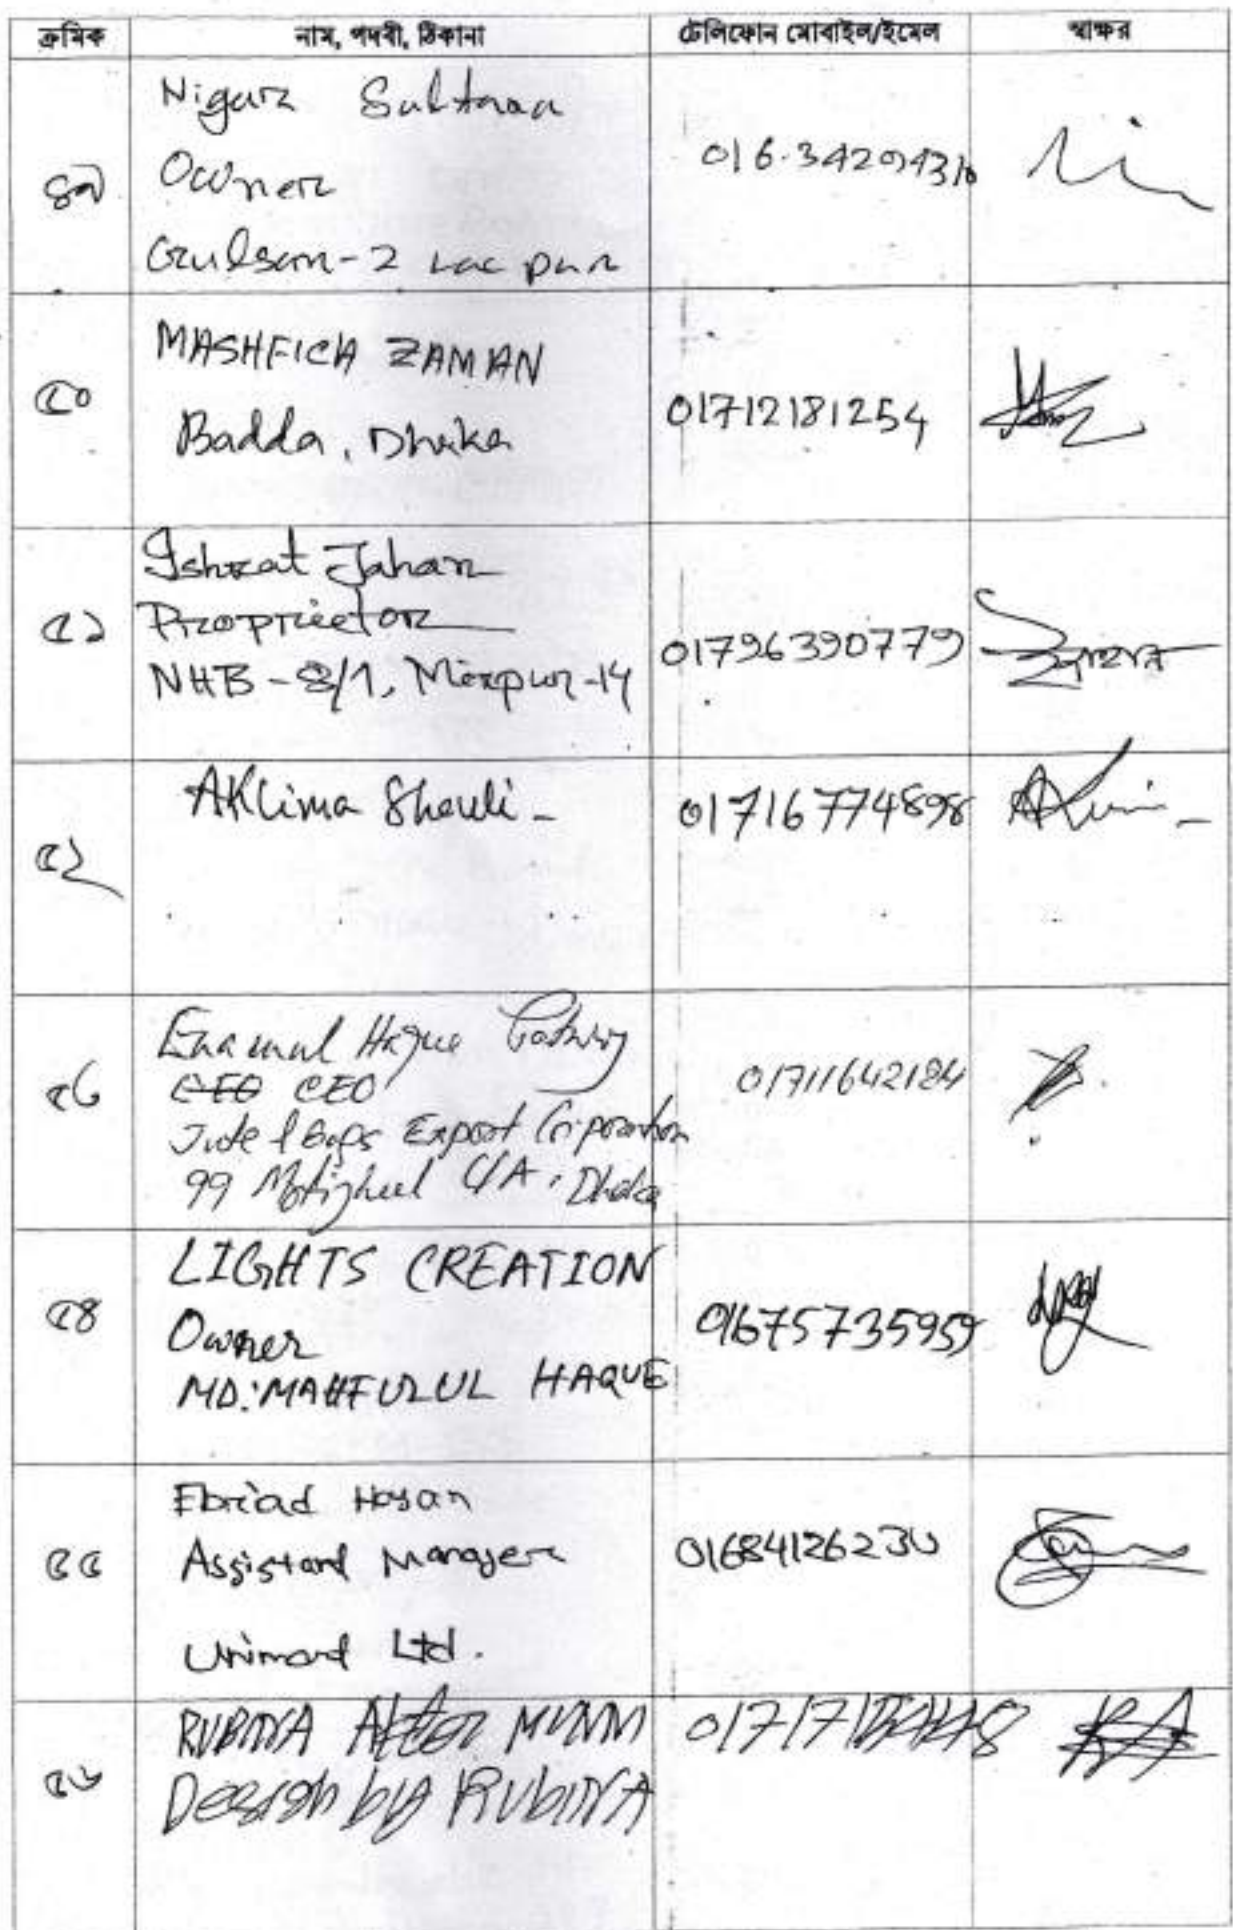 ক্রমিক নাম, পদবী, ঠিকানা টেলিফোন মোবাইল/ইমেল স্বাক্ষর
৪৯
Nigar Sultana
Owner
Gulsan-2
৫০
MASHFICA ZAMAN
Badda, Dhaka
01712181254
৫১
Ishrat Jahan
Proprietor
NHB - 8/1, Mirpur-14
01796390779
৫২
AKlima Sheuli -
01716774898
৫৩
Enamul Haque
CEO CEO
Jute & Bags Export Corporation
99 Motijheel C/A, Dhaka
01711642184
৫৪
LIGHTS CREATION
Owner
MD. MAHFUZUL HAQUE
01675735959
৫৫
Ebriad Hasan
Assistant Manager
Unimart Ltd.
01684126230
৫৬
RUBINA Akter MUNNI
Design by RUBINA